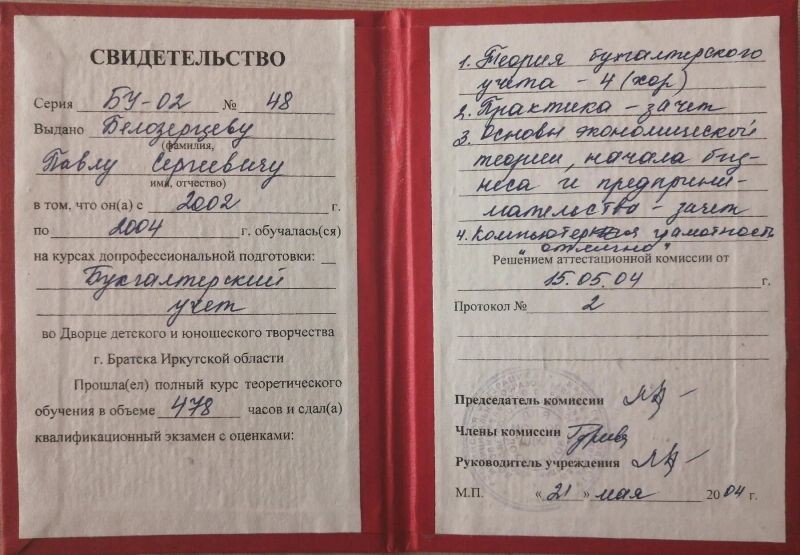 СВИДЕТЕЛЬСТВО
Серия БУ-02 № 48
Выдано Белозерцеву
(фамилия,
Павлу Сергиевичу
имя, отчество)
в том, что он(а) с 2002 г.
по 2004 г. обучалась(ся)
на курсах допрофессиональной подготовки:
Бухгалтерский
учет
во Дворце детского и юношеского творчества
г. Братска Иркутской области
Прошла(ел) полный курс теоретического
обучения в объеме 478 часов и сдал(а)
квалификационный экзамен с оценками:
1. Теория бухгалтерского
учета - 4 (хор)
2. Практика - зачет
3. Основы экономической
теории, начала биз-
неса и предприни-
мательство - зачет
4. Компьютерная грамотность
"отлично"
Решением аттестационной комиссии от
15.05.04 г.
Протокол № 2
Председатель комиссии
Члены комиссии
Руководитель учреждения
М.П. «21» мая 2004 г.